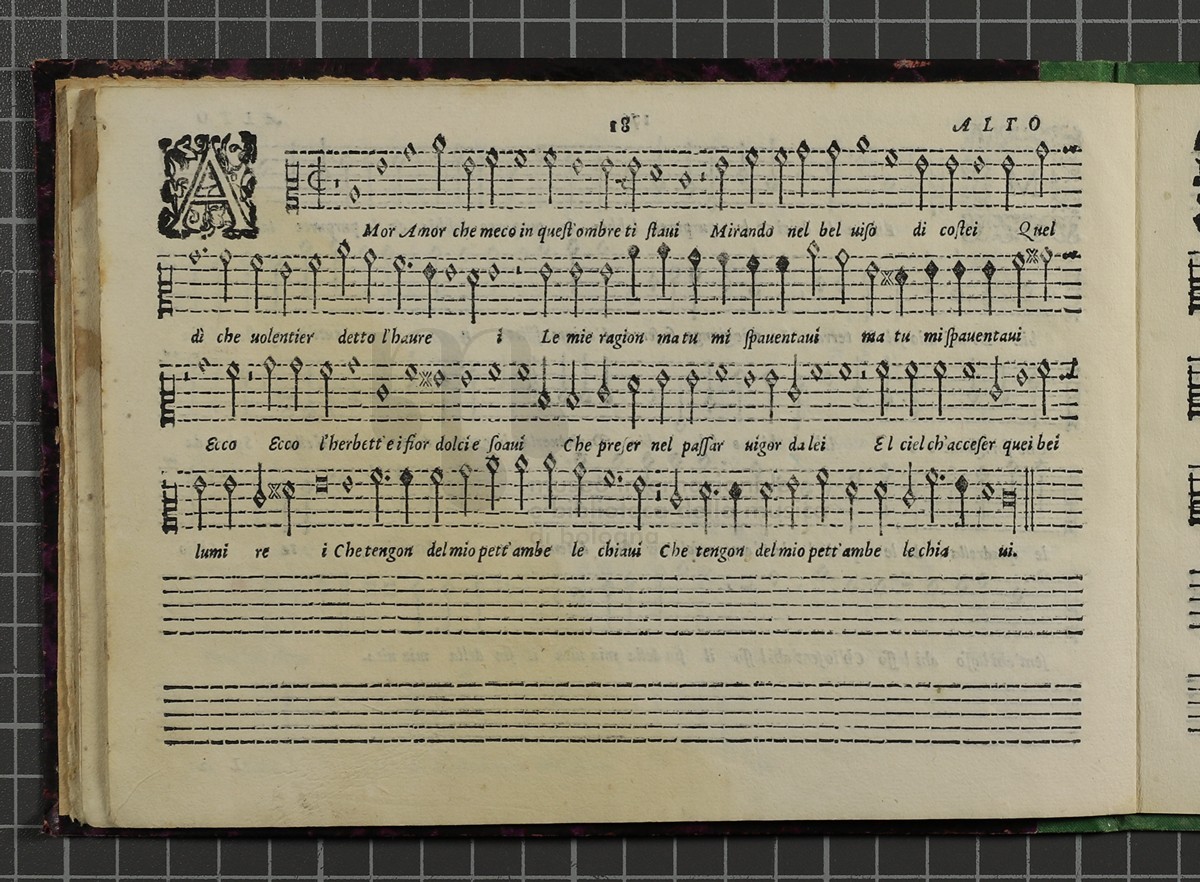 18
ALTO
AMor Amor che meco in quest'ombre ti staui Mirando nel bel uiso di costei Quel
dì che uolentier detto l'haure i Le mie ragion ma tu mi spauentaui ma tu mi spauentaui
Ecco Ecco l'herbett'e i fior dolci e soaui Che preser nel passar uigor da lei El ciel ch'acceser quei bei
lumi re i Che tengon del mio pett'ambe le chiaui Che tengon del mio pett'ambe le chia ui.